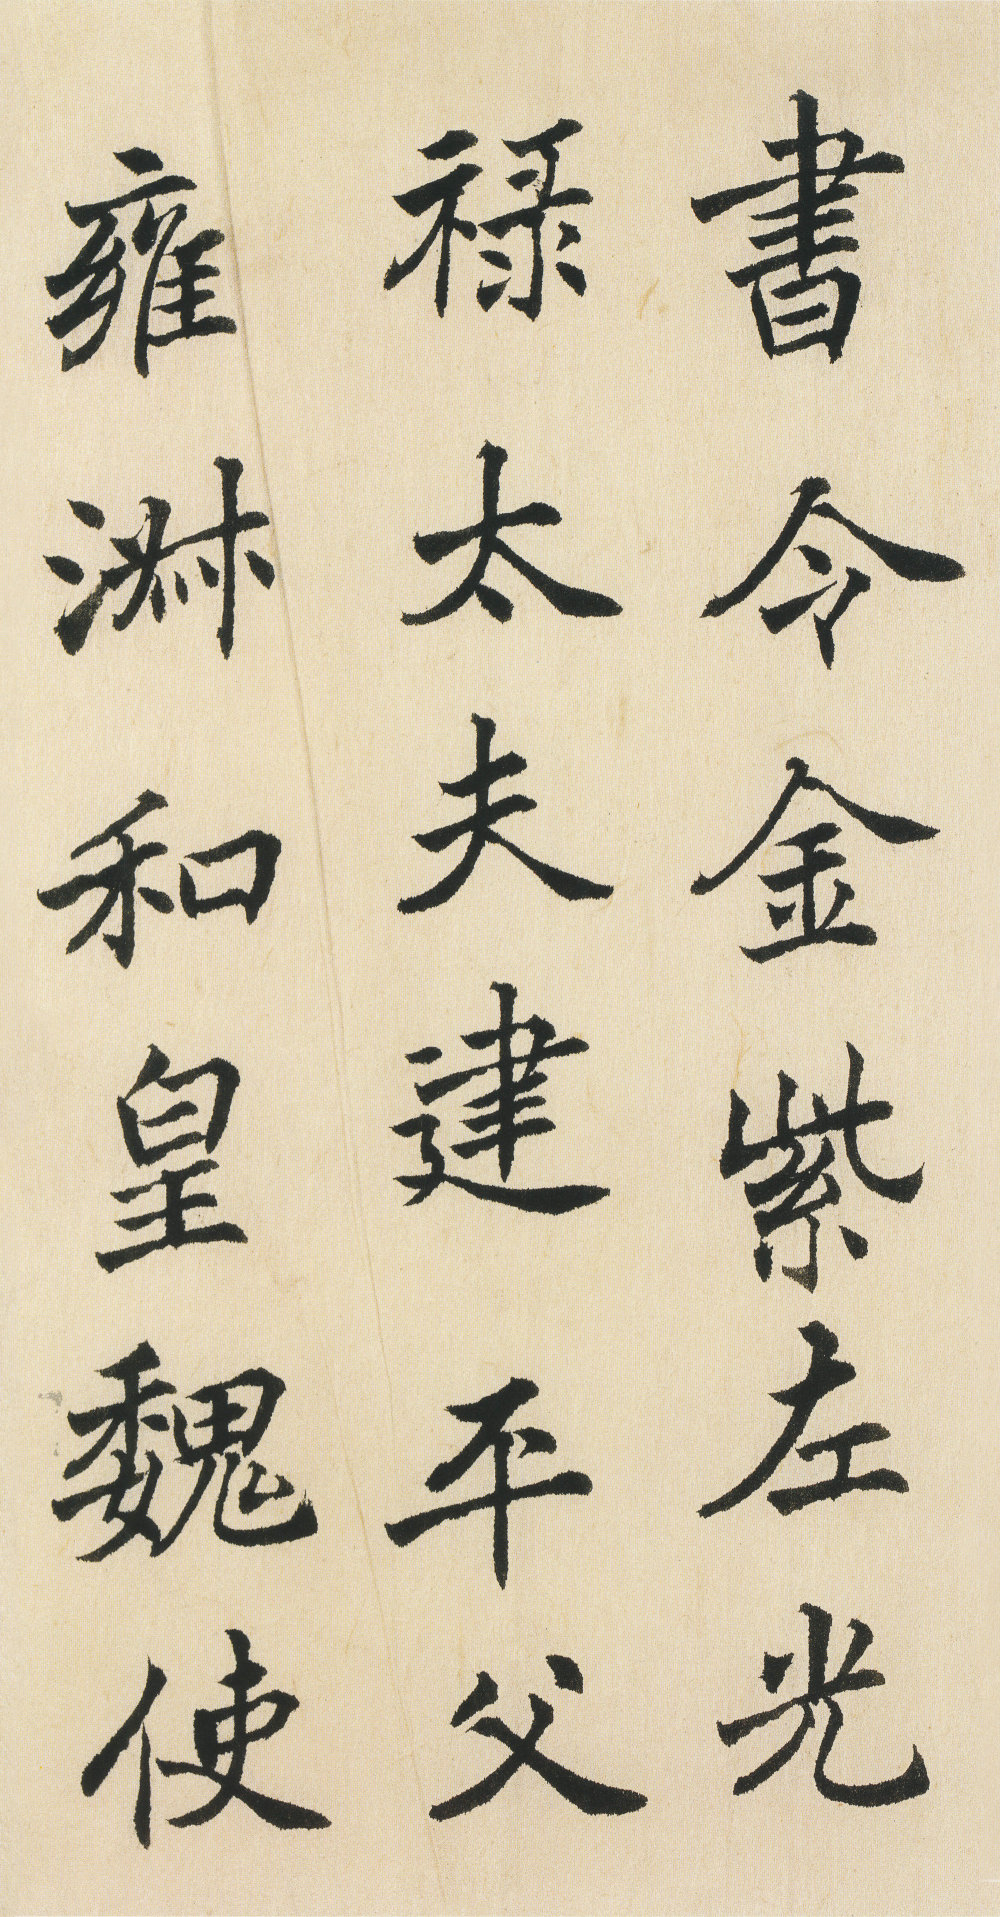 書令金紫左光
禄太夫建平父
雍淋和皇魏使